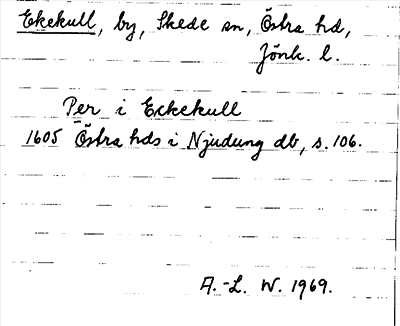 Ekekull, by, Skede sn, Östra hd,
Jönk. l.
Per i Eckekull
1605 Östra hds i Njudung db, s. 106.
A.-L. W. 1969.